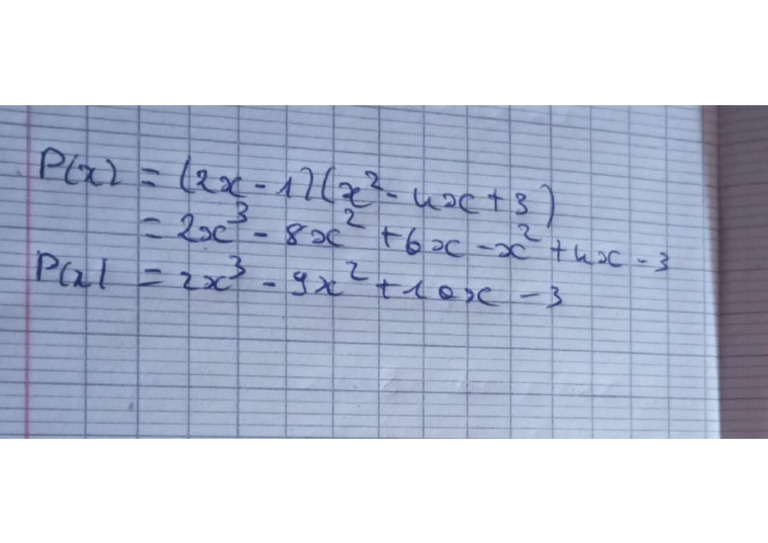 P(x) = (2x - 1)(x² - 4x + 3)
= 2x³ - 8x² + 6x - x² + 4x - 3
P(x) = 2x³ - 9x² + 10x - 3